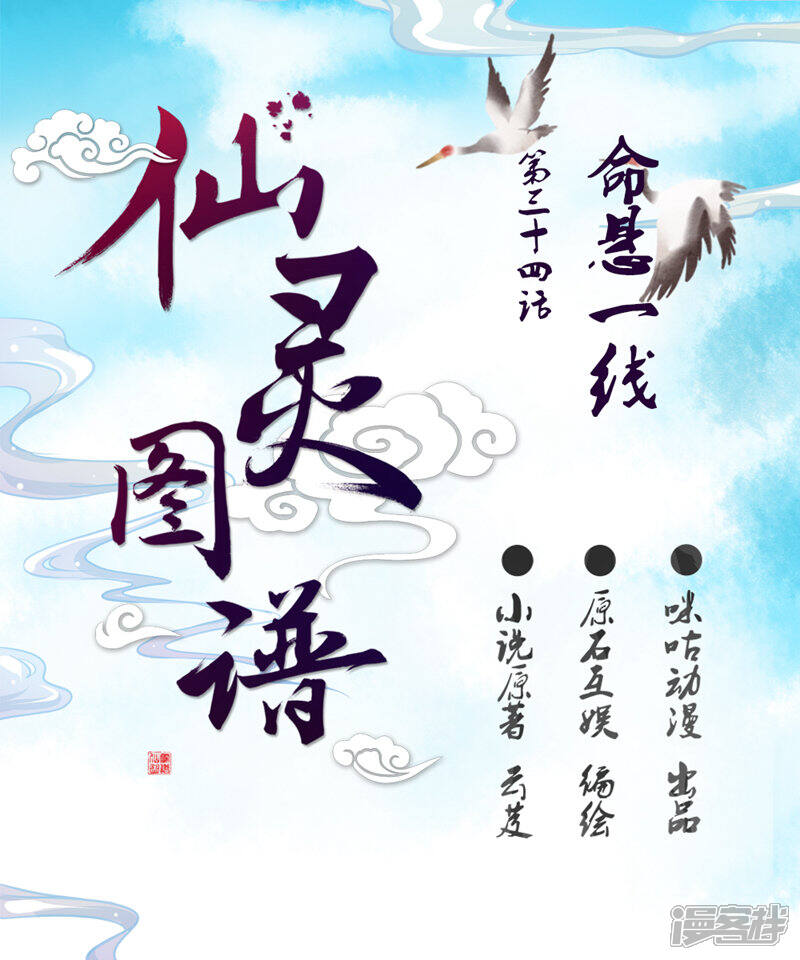 仙灵图谱
命悬一线
第三十四话
咪咕动漫 出品
原石互娱 编绘
小说原著 云芨
漫客栈